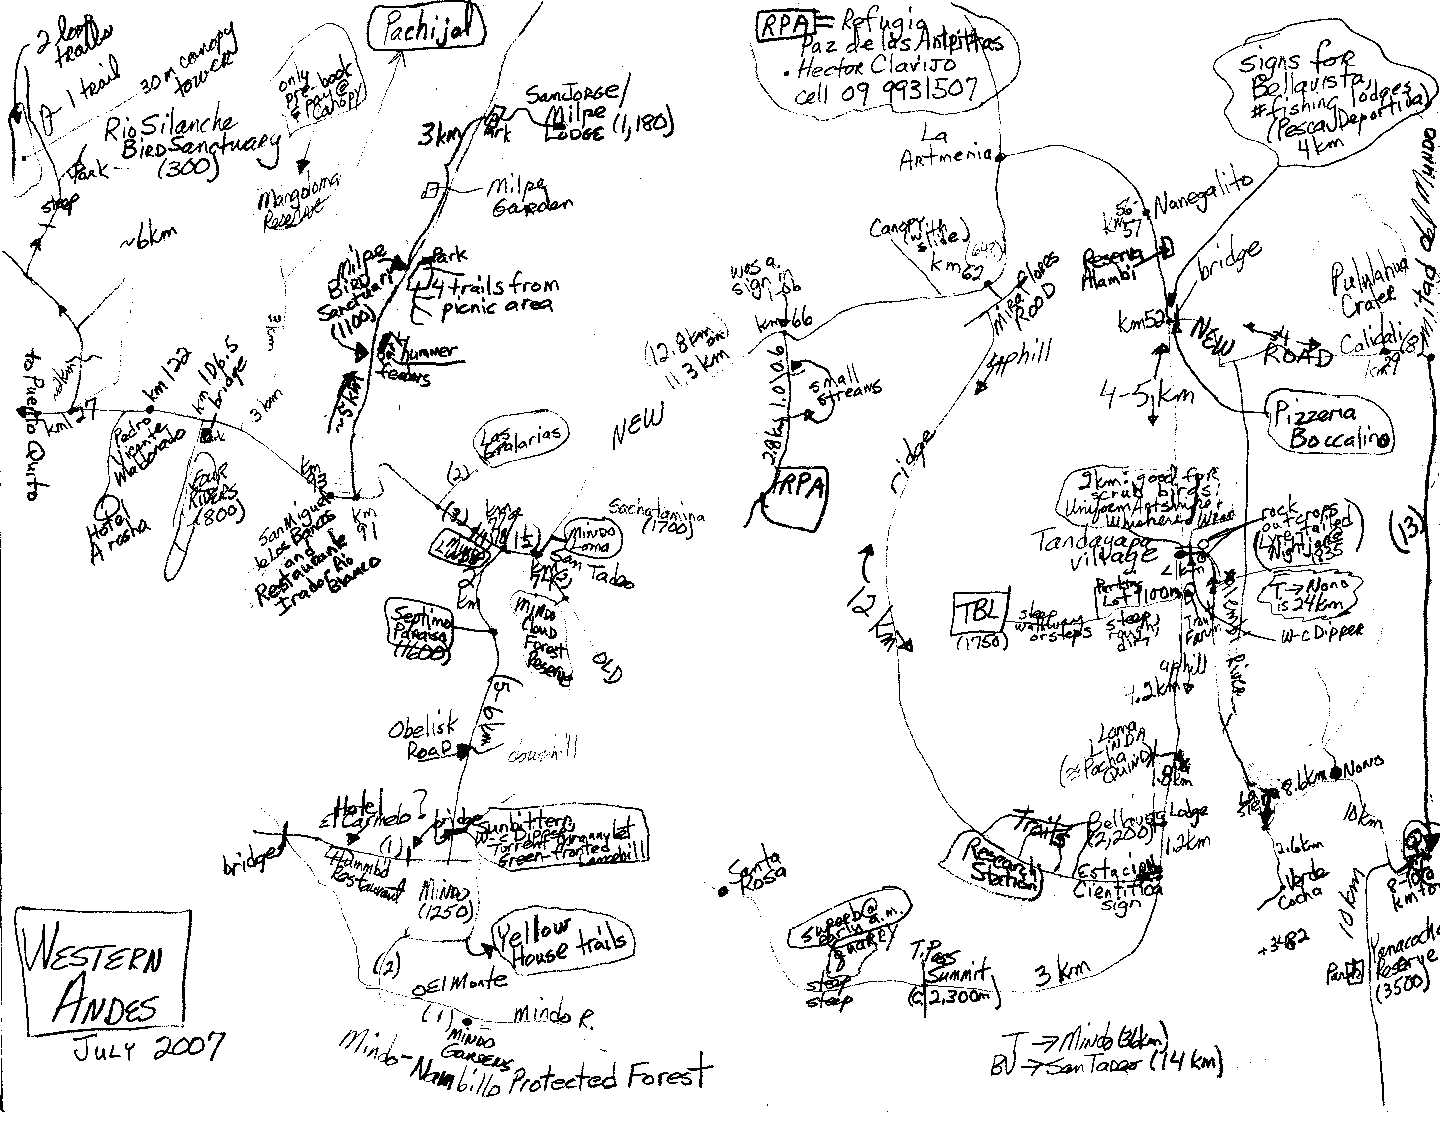 2 loop
trails
1 trail
30 m canopy
tower
Rio Silanche
Bird Sanctuary
(300)
Park
steep
~6km
to Puerto Quito
~2km
km 127
km 122
Pedro
Vicente
Maldonado
Hotel
Arasha
km 106.5
bridge
Park
Four
Riders
(800)
3 km
3 km
only
pre-book
& pay @
Canopy
Mangoloma
Reserve
Pachijal
3km
Park
San Jorge/
Milpe
Lodge (1,180)
Milpe
Garden
Milpe
Bird
Sanctuary
(1100)
Park
4 trails from
picnic area
hummer
feeders
~5km
km
93
km
91
San Miguel
de Los Bancos
and
Restaurante
Mirador Rio
Blanco
Las
Gralarias
(2)
(3)
NEW
Sachatamia
(1700)
Mindo
Loma
San Tadeo
2
km
Septimo
Paraiso
(1600)
Mindo
Cloud
Forest
Reserve
OLD
5-
6 km
Obelisk
Road
downhill
Hotel
El Carmelo?
bridge
bridge
(1)
Restaurant
Sunbittern,
W-C Dipper,
Torrent Tyrannulet
Green-fronted
Lancebill
Mindo
(1250)
Yellow
House trails
(2)
El Monte
(1)
Mindo R.
Mindo
Gardens
Mindo-
Nambillo Protected Forest
Western
Andes
July 2007
RPA = Refugio
Paz de las Antpittas
• Hector Clavijo
cell 09 9931507
La
Artmenia
Canopy
(with
slide)
km 62
Miraflores
Road
uphill
was a
sign in
06
km 66
(12.8 km on
11.3 km
2.8km 1.01.06
small
streams
RPA
ridge
12 km
signs for
Bellavista
# fishing lodges
(Pesca Deportiva)
4 km
56-
km 57
Nanegalito
Reserva
Alambi
bridge
km 52
NEW
ROAD
4-5 km
Pululahua
Crater
Calidali
km 29
(8)
Mitad del Mundo
Pizzeria
Boccalino
(13)
2km: good for
scrub birds,
Uniform Antshrike &
Whiskered Wren
Tandayapa
village
rock
outcrops
(Lyre-tailed
Nightjar)
1835
T → Nono
is 24km
W-C Dipper
TBL
(1750)
steep
walkway
or steps
Parking
Lot
100m
steep
rough
dirt
Trout
Farm
River
uphill
4.2km
Loma
Linda
(= Pacha
Quindi)
1.8km
Trails
Bellavista Lodge
(2,200)
1.2km
Research
Station
Estacion
Cientifica
sign
Santa
Rosa
superb @
early a.m.
steep
steep
T. Pass
Summit
(c. 2,300m)
3 km
T → Mindo (36km)
BV → San Tadeo (14 km)
8.6km
Nono
10km
2.6km
Verde
Cocha
+3482
10 km
Park
Yanacocha
Reserve
(3500)